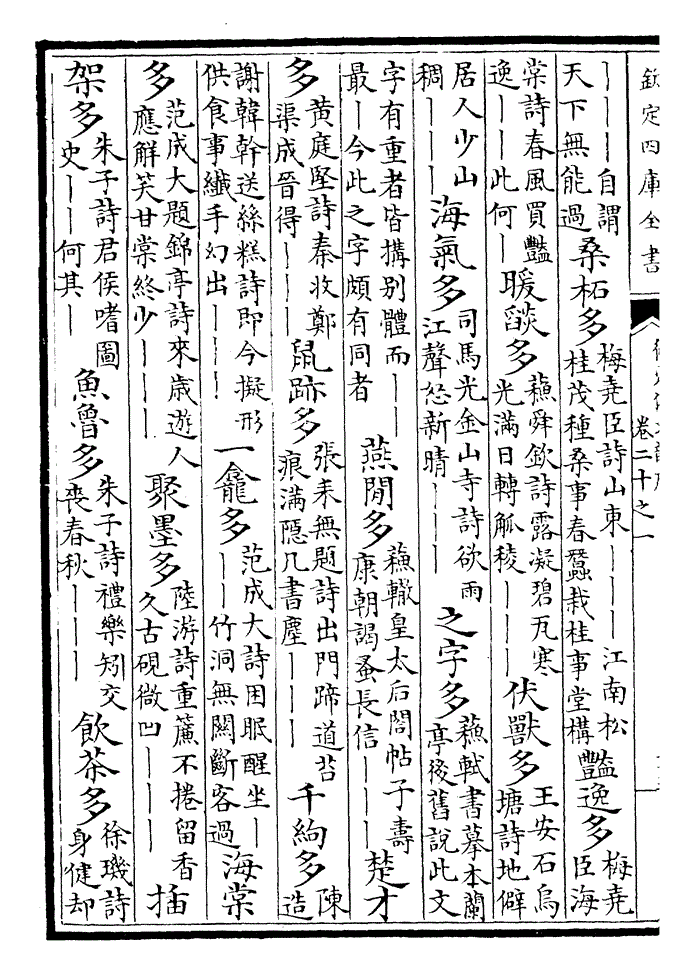 欽定四庫全書
卷二十之一
————自謂
天下無能過
桑柘多
梅堯臣詩山東———江南松
桂茂種桑事春蠶栽桂事堂構
豔逸多
梅堯
臣海
棠詩春風買豔
逸——此何—
暖燄多
蘇舜欽詩露凝碧瓦寒
光滿日轉觚稜———
伏獸多
王安石烏
塘詩地僻
居人少山
稠———
海氣多
司馬光金山寺詩欲雨
江聲怒新晴———
之字多
蘇軾書摹本蘭
亭後舊說此文
字有重者皆搆別體而——
最—今此之字頗有同者
燕閒多
蘇轍皇太后閣帖子壽
康朝謁蚤長信———
楚才
多
黃庭堅詩秦收鄭
渠成晉得———
鼠跡多
張耒無題詩出門蹄道苔
痕滿隱几書塵———
千絇多
陳
造
謝韓幹送絲糕詩即今擬形
供食事纖手幻出———
一龕多
范成大詩困眠醒坐—
——竹洞無關斷客過
海棠
多
范成大題錦亭詩來歲遊人
應解笑甘棠終少———
聚墨多
陸游詩重簾不捲留香
久古硯微凹———
插
架多
朱子詩君侯嗜圖
史——何其—
魚魯多
朱子詩禮樂矧交
喪春秋———
飲茶多
徐璣詩
身健却